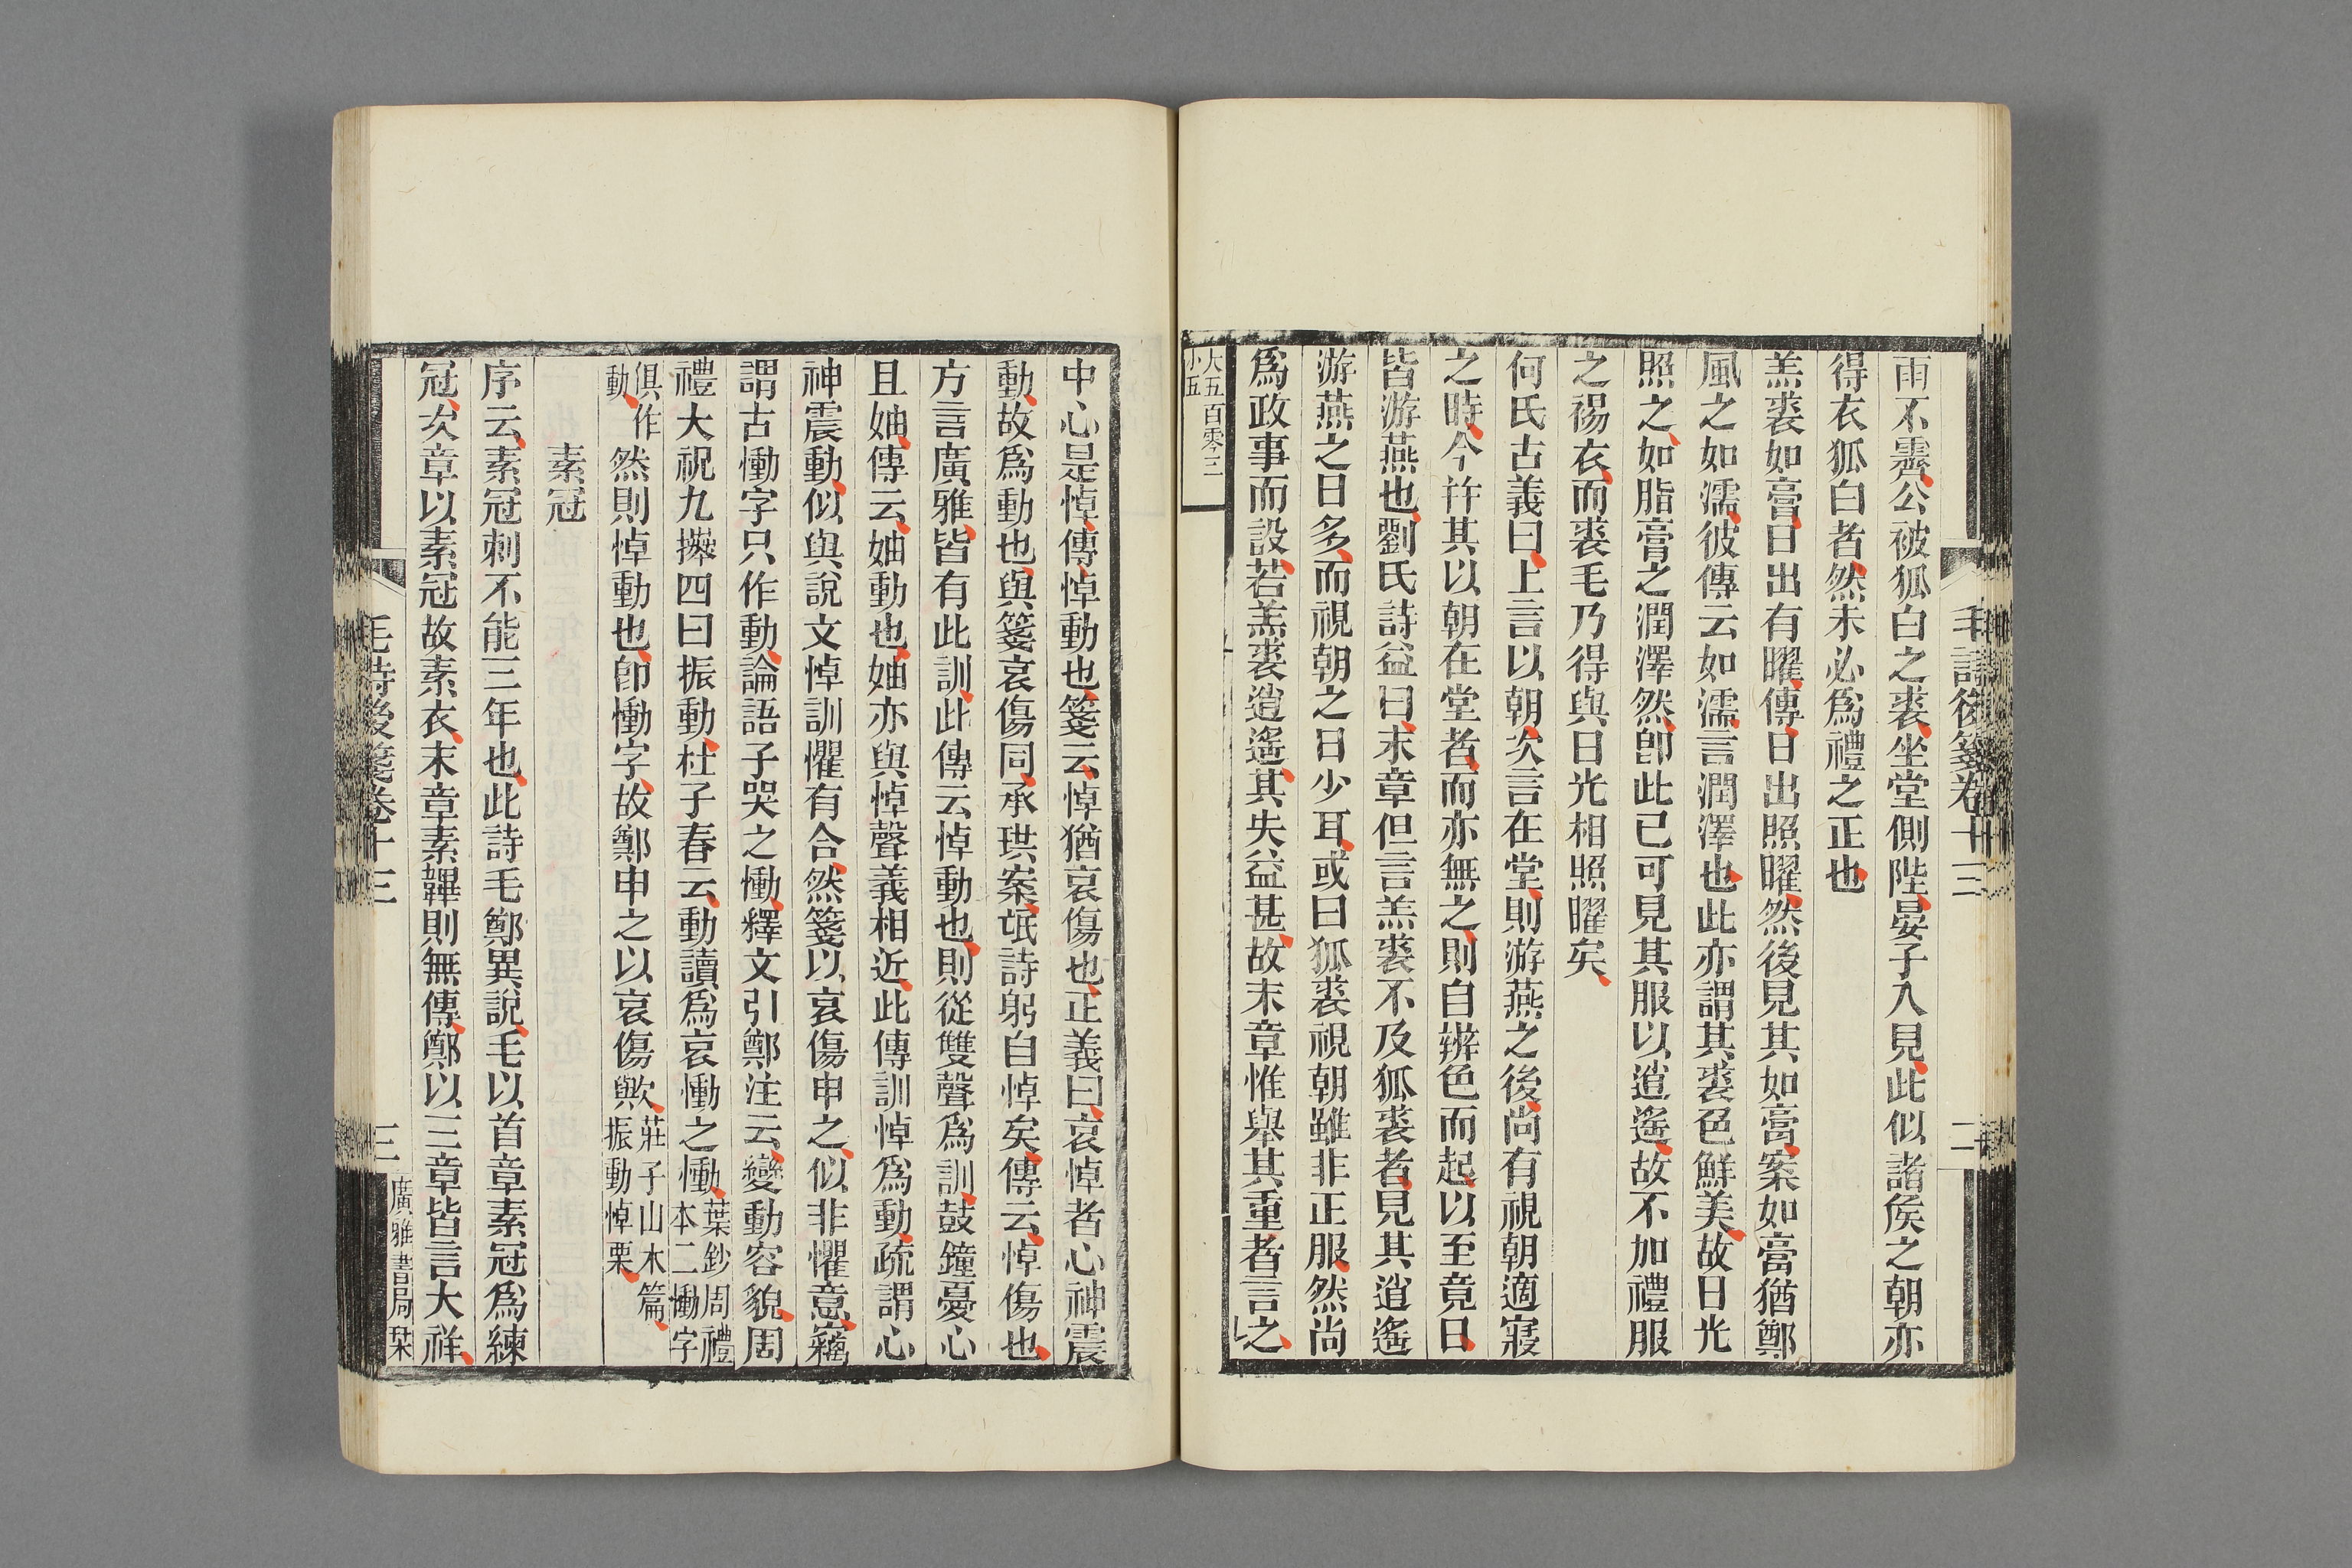 毛詩後箋卷十三
二
雨不霽公被狐白之裘坐堂側陛晏子入見此似諸侯之朝亦
得衣狐白者然未必爲禮之正也
羔裘如膏日出有曜傳日出照曜然後見其如膏案如膏猶鄭
風之如濡彼傳云如濡言潤澤也此亦謂其裘色鮮美故日光
照之如脂膏之潤澤然卽此已可見其服以逍遙故不加禮服
之裼衣而裘毛乃得與日光相照曜矣
何氏古義曰上言以朝次言在堂則游燕之後尚有視朝適寢
之時今幷其以朝在堂者而亦無之則自辨色而起以至竟日
皆游燕也劉氏詩益曰末章但言羔裘不及狐裘者見其逍遙
游燕之日多而視朝之日少耳或曰狐裘視朝雖非正服然尚
爲政事而設若羔裘逍遙其失益甚故末章惟舉其重者言之
大五百零三
小五
中心是悼傳悼動也箋云悼猶哀傷也正義曰哀悼者心神震
動故爲動也與箋哀傷同承珙案氓詩躬自悼矣傳云悼傷也
方言廣雅皆有此訓此傳云悼動也則從雙聲爲訓鼓鐘憂心
且妯傳云妯動也妯亦與悼聲義相近此傳訓悼爲動疏謂心
神震動似與說文悼訓懼有合然箋以哀傷申之似非懼意竊
謂古慟字只作動論語子哭之慟釋文引鄭注云變動容貌周
禮大祝九㩌四曰振動杜子春云動讀爲哀慟之慟葉鈔周禮
本二慟字
俱作
動然則悼動也卽慟字故鄭申之以哀傷歟莊子山木篇
振動悼栗
素冠
序云素冠刺不能三年也此詩毛鄭異說毛以首章素冠爲練
冠次章以素冠故素衣末章素韠則無傳鄭以三章皆言大祥
毛詩後箋卷十三
三
廣雅書局栞